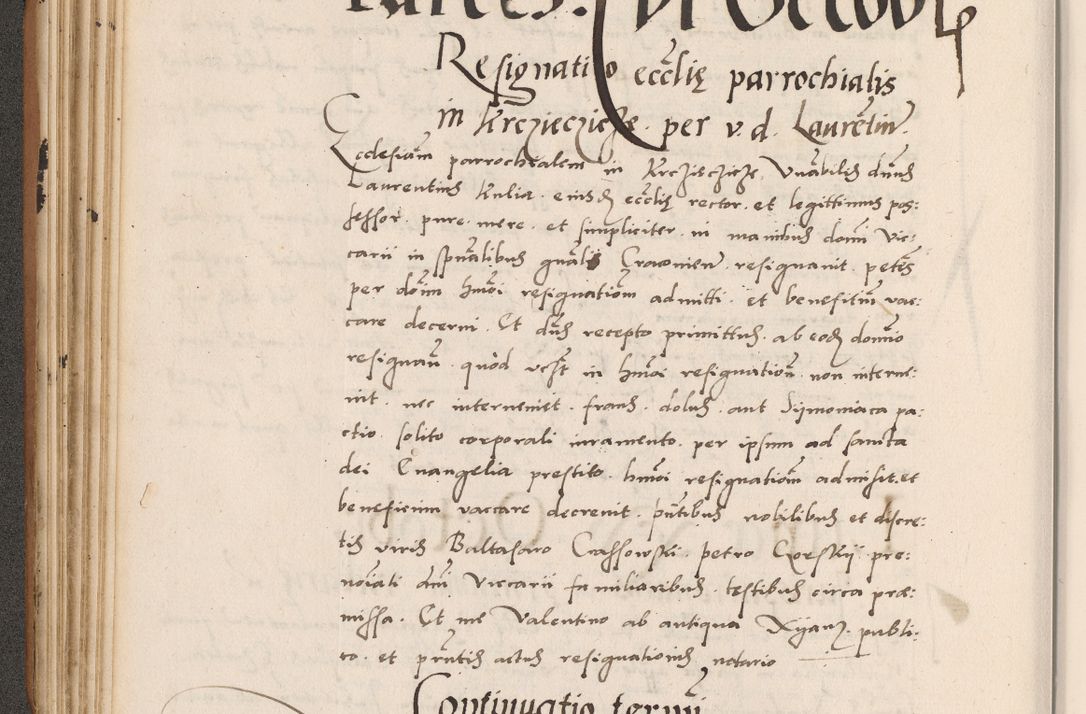 Resignatio ecclię parrochialis
in Krczieczicze . per v. d. Laurentiu.
Ecclesiam parrochialem in Krczieczicze, Vnabilis dnus
Laurentius Kulia . eiusdem ecclię rector . et legittimus pos:
sessor . pure . mere . et simpliciter . in manibus domi Vic:
carii in spualibus gnalis Cracovien . resignavit . petes
per dom hmoi resignationem admitti . et beneficiu vac:
care decerni . Et dnus recepto primittus . ab eodem domno
resignan . quod . in hmoi resignation . non interve:
nit . nec interveniet . fraus . dolus . aut Symoniaca pa:
ctio . solito corporali iuramento . per ipsum ad sancta
dei Evangelia prestito . hmoi resignationem admisit . et
beneficium vaccare decrevit . pntibus nobilibus et discre:
tis viris Baltasaro Crassowski . petro . pre:
noiati dni Viccarii familiaribus . testibus circa præ:
missa . Et me Valentino ab antiqua . publi:
co . et pntis actus resignationis notario
Continuatio termi